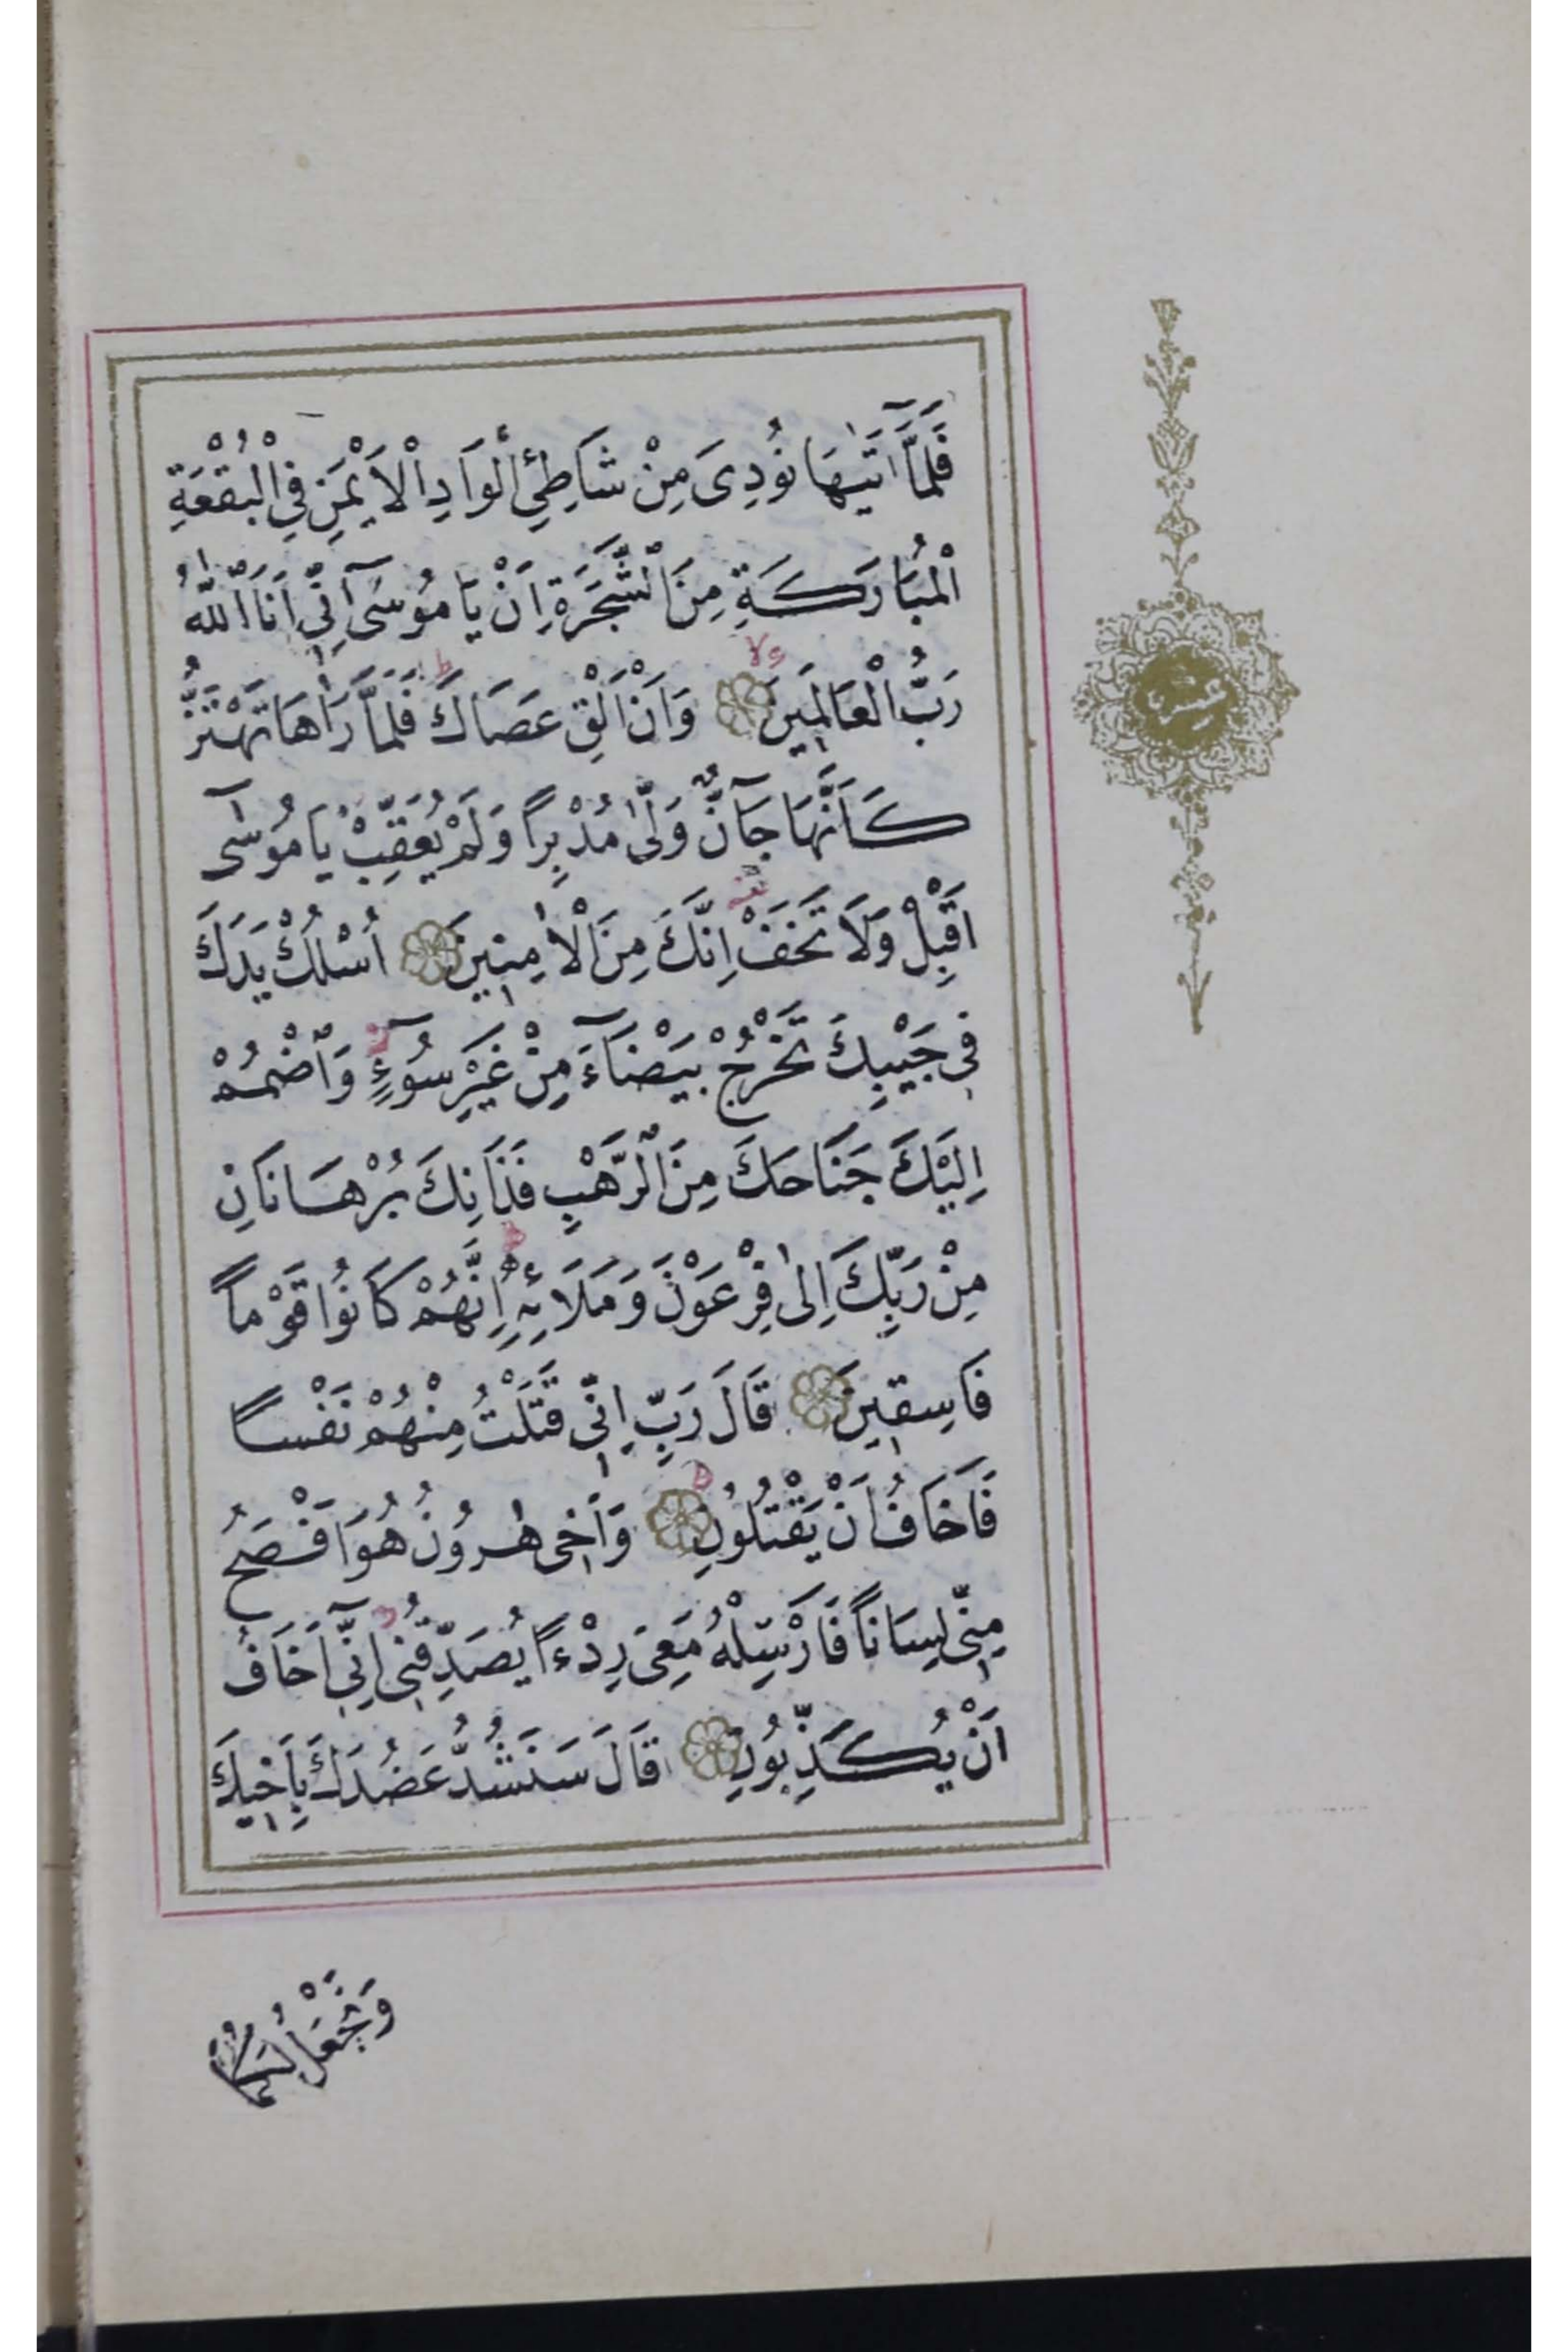 فَلَمَّٓا اَتٰيهَا نُودِىَ مِنْ شَاطِئِ الْوَادِ الْاَيْمَنِ فِى الْبُقْعَةِ
الْمُبَارَكَةِ مِنَ الشَّجَرَةِ اَنْ يَا مُوسٰٓى اِنّ۪ٓى اَنَا اللّٰهُ
رَبُّ الْعَالَم۪ينَ وَاَنْ اَلْقِ عَصَاكَ فَلَمَّا رَاٰهَا تَهْتَزُّ
كَاَنَّهَا جَٓانٌّ وَلّٰى مُدْبِراً وَلَمْ يُعَقِّبْ يَا مُوسٰٓى
اَقْبِلْ وَلَا تَخَفْ اِنَّكَ مِنَ الْاٰمِن۪ينَ اُسْلُكْ يَدَكَ
ف۪ى جَيْبِكَ تَخْرُجْ بَيْضَٓاءَ مِنْ غَيْرِ سُٓوءٍ وَاضْمُمْ
اِلَيْكَ جَنَاحَكَ مِنَ الرَّهْبِ فَذَانِكَ بُرْهَانَانِ
مِنْ رَبِّكَ اِلٰى فِرْعَوْنَ وَمَلَائِهِ اِنَّهُمْ كَانُوا قَوْماً
فَاسِق۪ينَ قَالَ رَبِّ اِنّ۪ى قَتَلْتُ مِنْهُمْ نَفْساً
فَاَخَافُ اَنْ يَقْتُلُونِ وَاَخ۪ى هٰرُونُ هُوَ اَفْصَحُ
مِنّ۪ى لِسَاناً فَاَرْسِلْهُ مَعِىَ رِدْءاً يُصَدِّقُن۪ى اِنّ۪ٓى اَخَافُ
اَنْ يُكَذِّبُونِ قَالَ سَنَشُدُّ عَضُدَكَ بِاَخ۪يكَ
وَنَجْعَلُ لَكُمَا
عشر